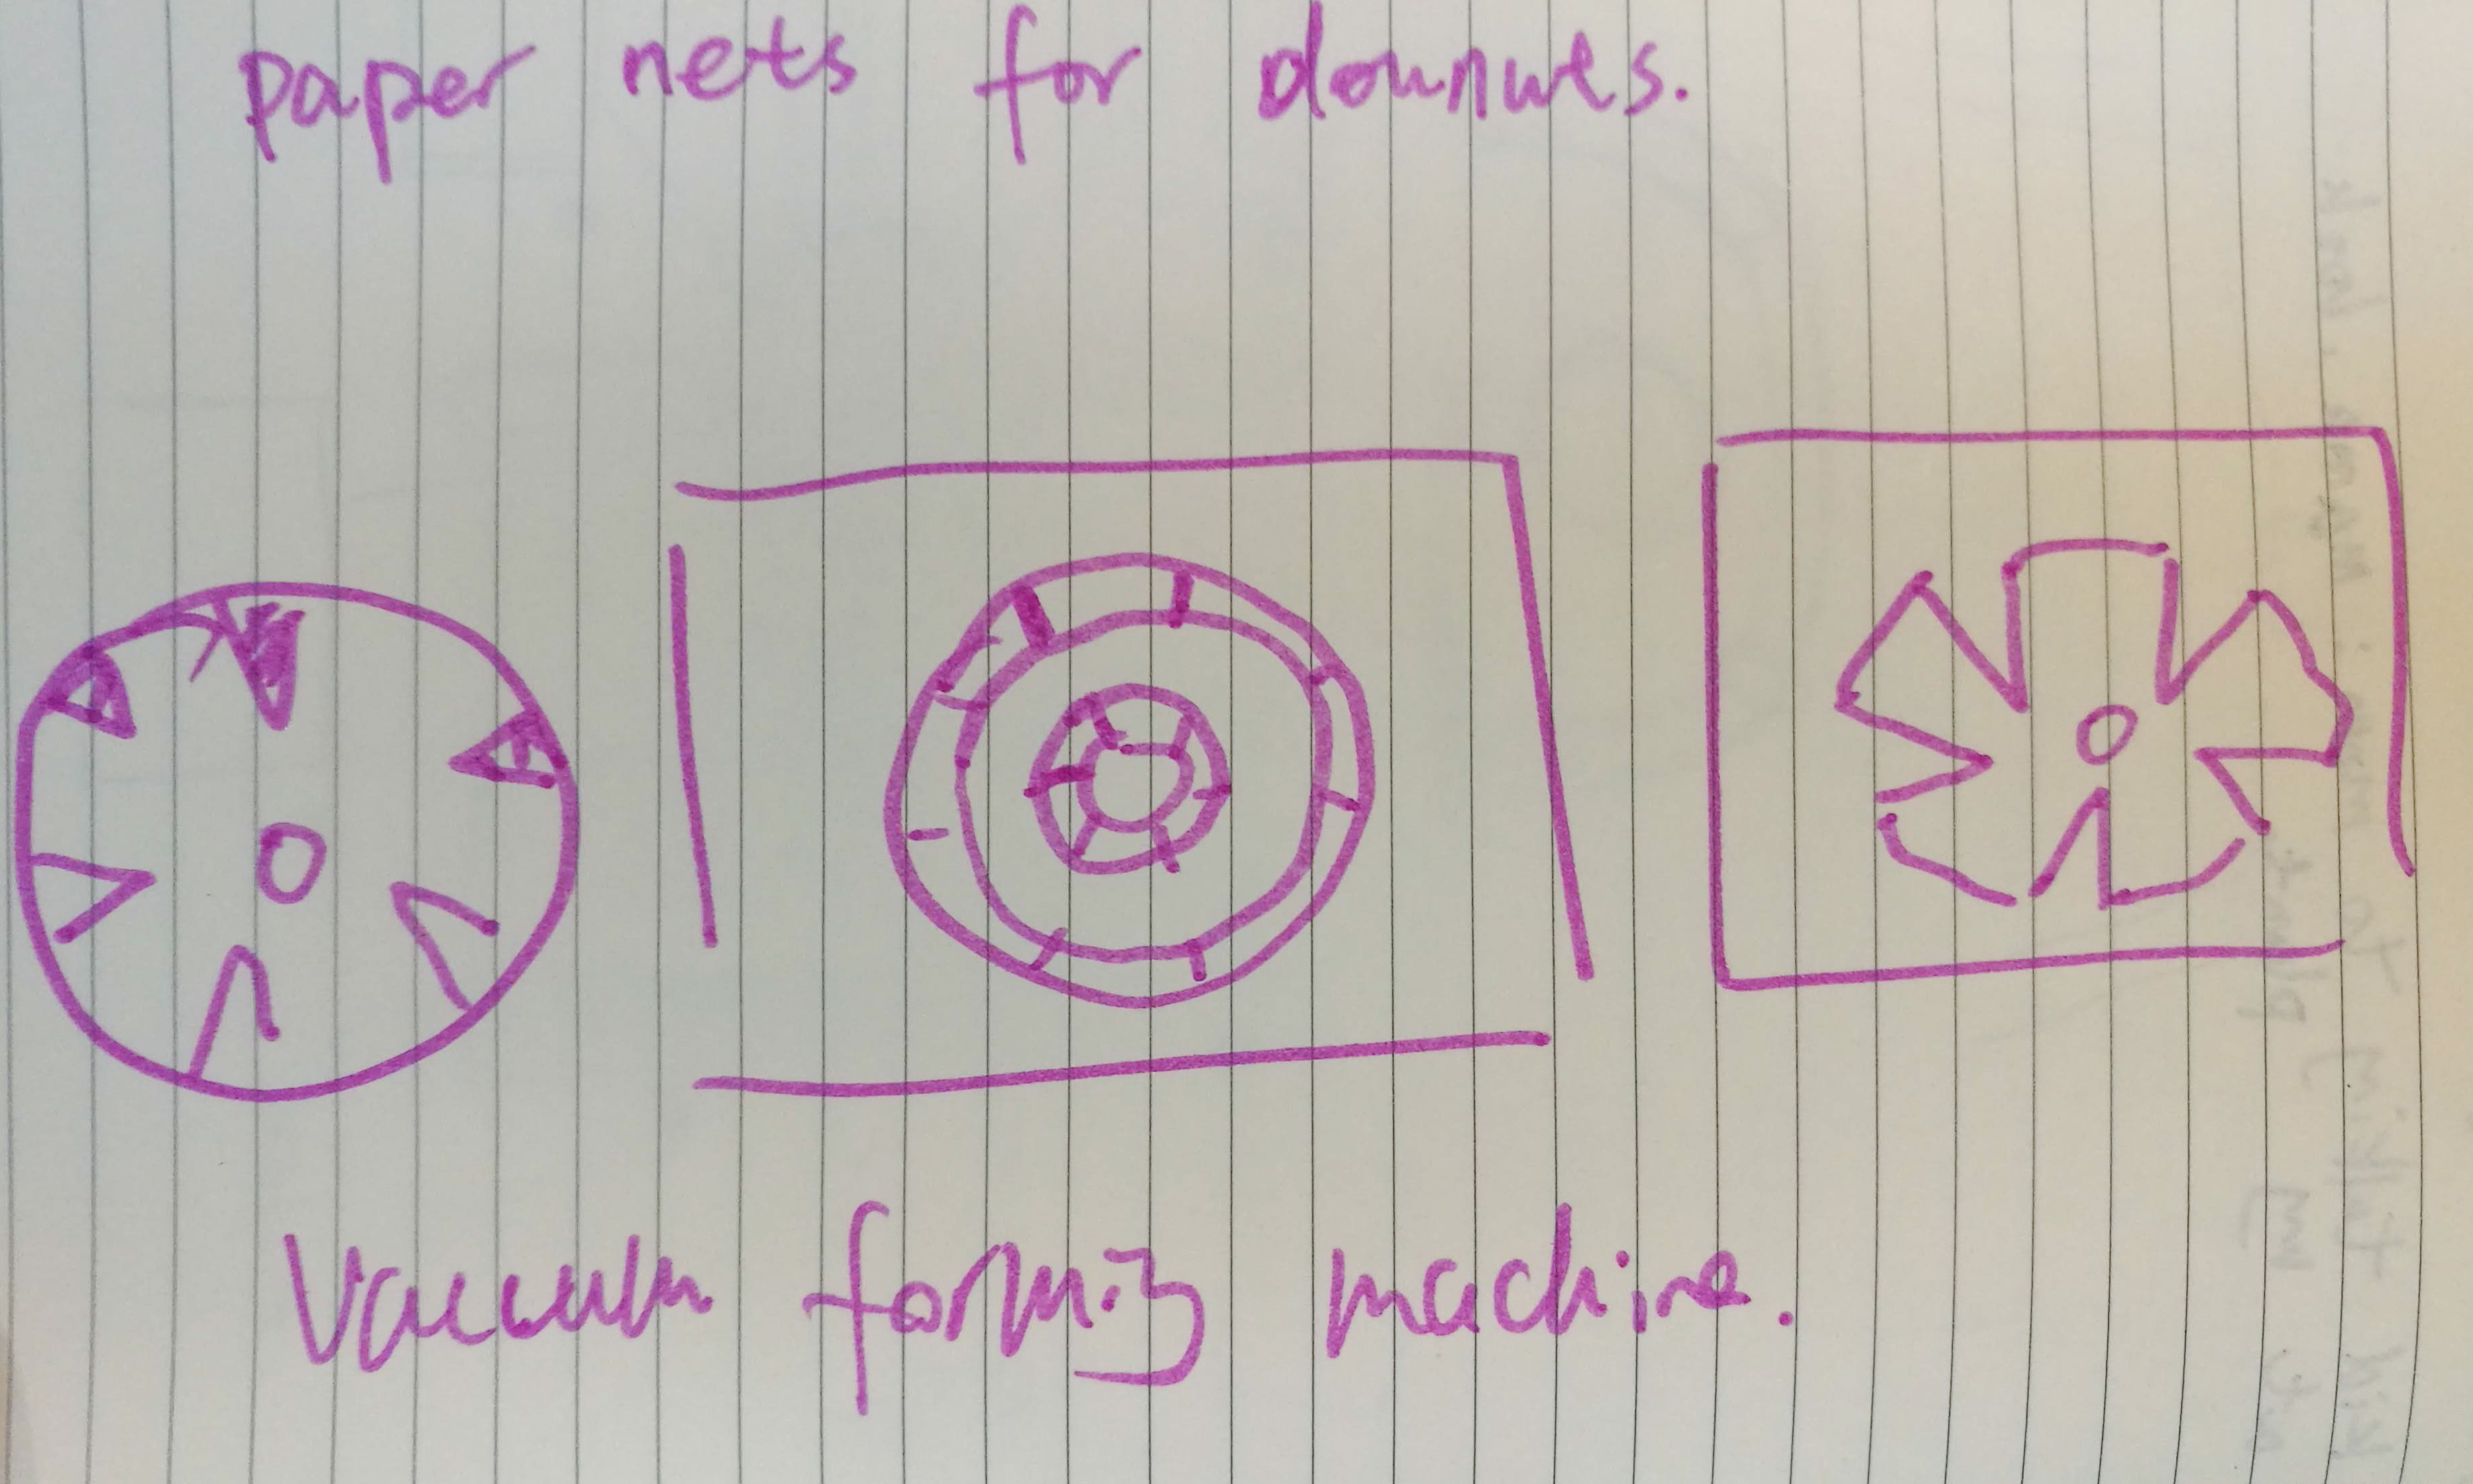 paper nets for dounuts.
Vacuum forming machine.